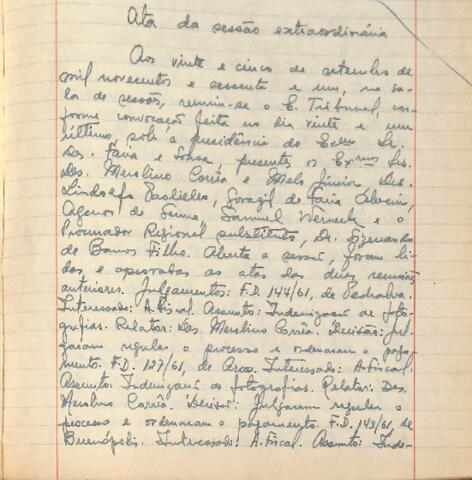 Ata da sessão extraordinária
Aos vinte e cinco de setembro de
mil novecentos e sessenta e um, na sa-
la de sessões, reuniu-se o E. Tribunal, con-
forme convocação feita no dia vinte e um
último, sob a presidência do Exmo Sr.
Des. Faria e Sousa, presentes os Exmos Srs.
Des. Merolino Corrêa e Melo Júnior, Drs.
Lindolfo Paoliello, de Faria
de Senna, Samuel Werneck e o
Procurador Regional substituto, Dr.
de Barros Filho. Aberta a sessão, foram li-
das e aprovadas as atas das duas reuniões
anteriores. Julgamentos: F.D. 144/61, de Pedralva.
Interessado: A. Fiscal. Assunto: Indenização de foto-
grafias. Relator: Des. Merolino Corrêa. Decisão: Jul-
garam regular o processo e ordenaram o paga-
mento. F.D. 127/61, de Arcos. Interessado: A. Fiscal.
Assunto: Indenização de fotografias. Relator: Des.
Merolino Corrêa. Decisão: Julgaram regular o
processo e ordenaram o pagamento. F.D. 143/61, de
Buenópolis. Interessado: A. Fiscal. Assunto: Inde-